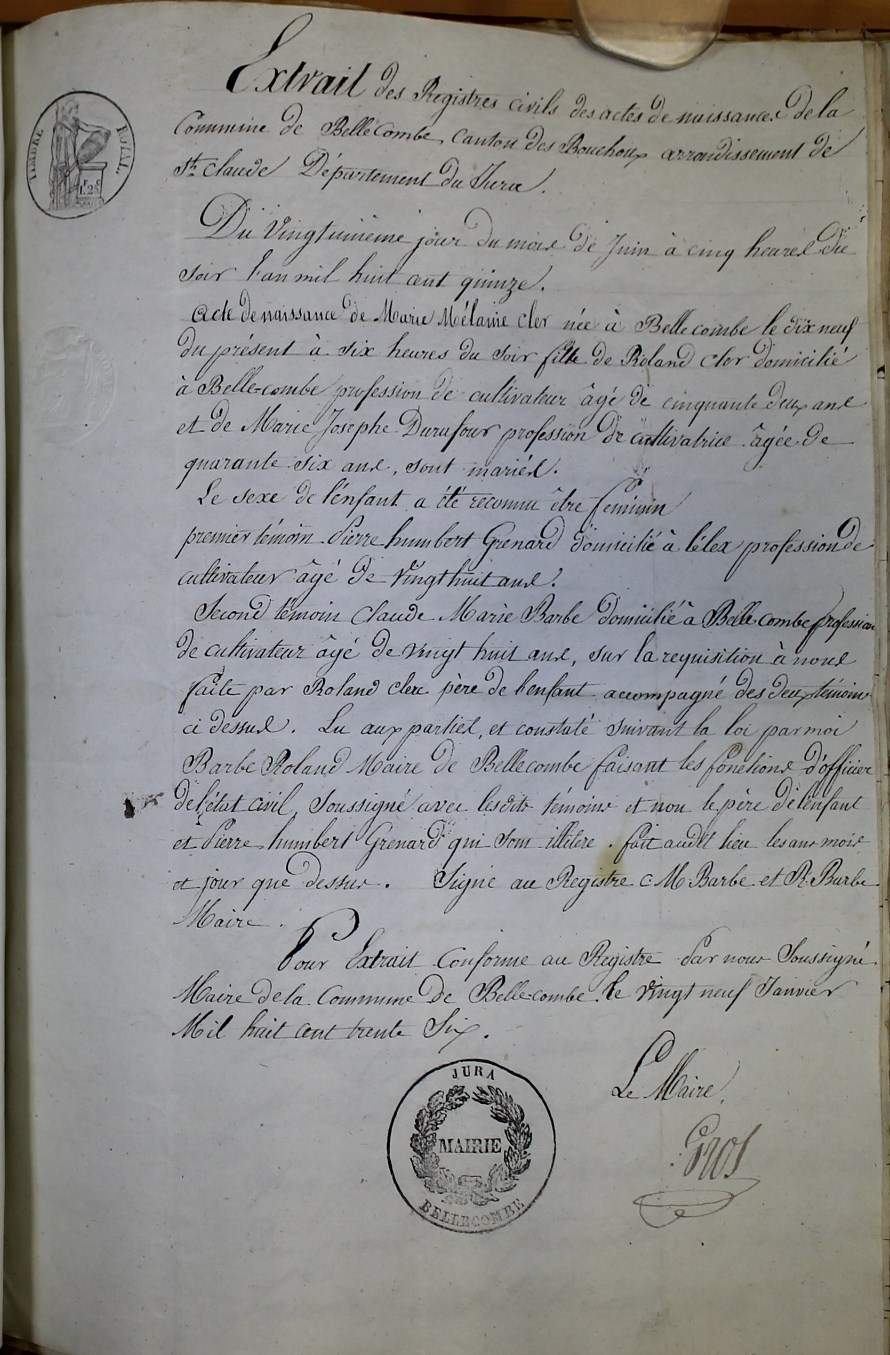 TIMBRE ROYAL
1F. 25C
Extrait des Registres civils des actes de naissances de la
Commune de Bellecombe, canton des Bouchoux arrondissement de
St. Claude Département du Jura.
Du Vingtunième jour du mois de Juin à cinq heures du
soir l'an mil huit cent quinze.
acte de naissance de Marie Mélanie Cler née à Bellecombe le dix neuf
du présent à six heures du soir fille de Roland Cler domicilié
à Belle-combe profession de cultivateur âgé de cinquante deux ans
et de Marie Josephe Durafour profession de cultivatrice âgée de
quarante six ans, sont mariés.
Le sexe de l'enfant a été reconnu être féminin
premier témoin Pierre humbert Grenard domicilié à lélex profession de
cultivateur âgé de vingt huit ans.
Second témoin Claude Marie Barbe domicilié à Belle-combe profession
de cultivateur âgé de vingt huit ans, sur la requisition à nous
faite par Roland clerc père de l'enfant accompagné des deux témoins
ci dessus. Lu aux parties, et constaté suivant la loi par moi
Barbe Roland Maire de Bellecombe faisant les fonctions d'officier
de l'état civil, soussigné avec lesdits témoins et non le père de l'enfant
et Pierre humbert Grenard qui sont illitere. fait audit lieu les ans mois
et jour que dessus. Signé au Registre C M Barbe et R. Barbe
Maire.
Pour Extrait Conforme au Registre Par nous Soussigné
Maire de la Commune de Belle-combe. le vingt neuf Janvier
Mil huit cent trente Six.
Le Maire,
Gros
JURA
MAIRIE
BELLECOMBE